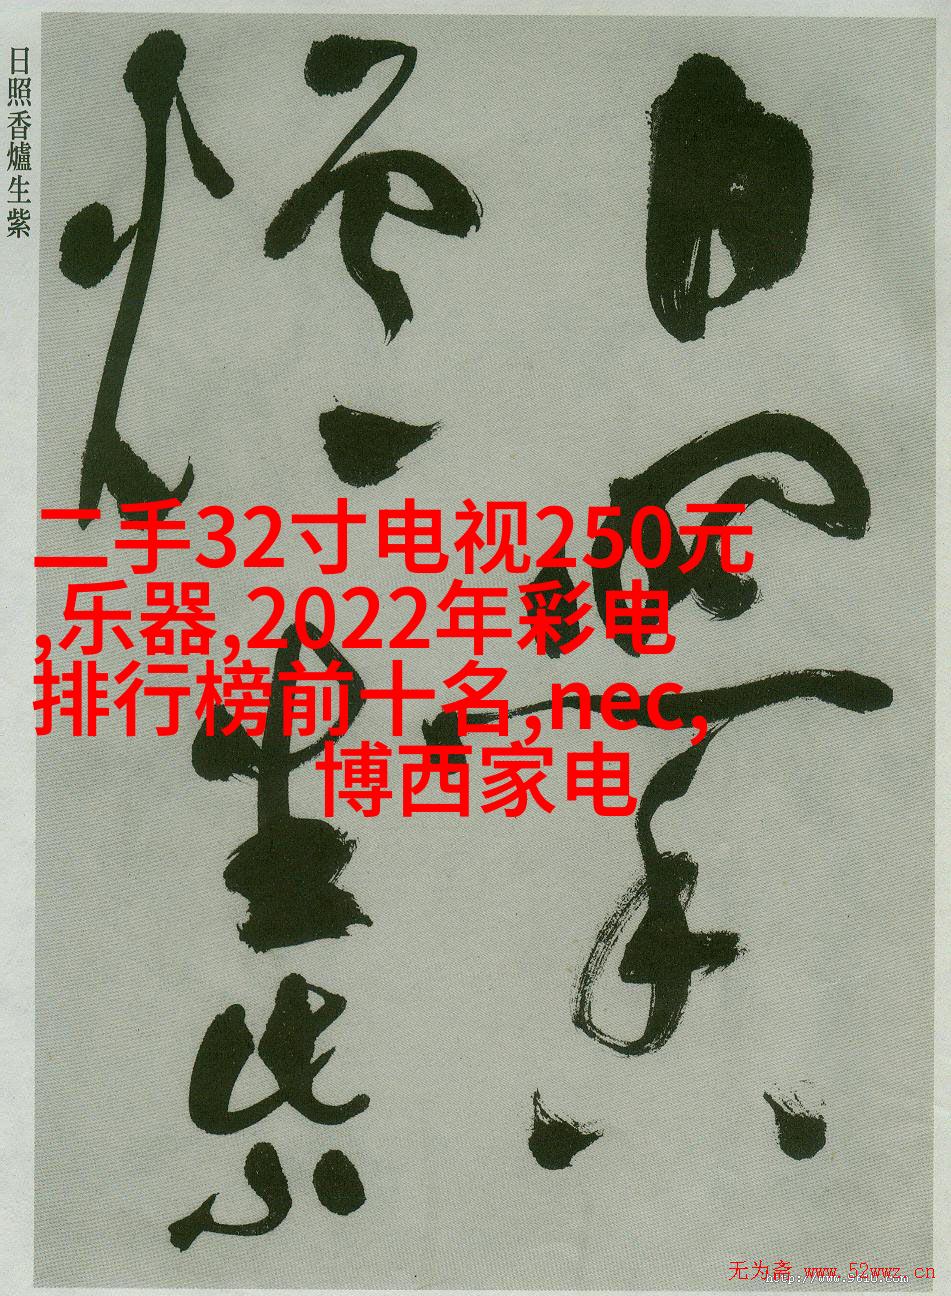 日照香爐生紫
日照香
爐生紫
二手32寸电视250元
,乐器,2022年彩电
排行榜前十名,nec,
博西家电
无为斋 www.52wwz.cn
http://www.9610.com